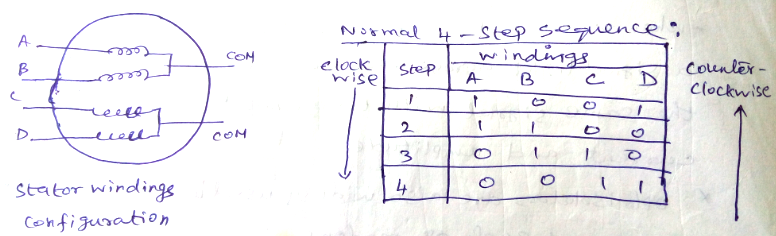 A
B
C
D
COM
COM
Stator windings
Configuration
Normal 4-Step sequence:
clock
wise
Step
windings
A B C D
1 1 0 0 1
2 1 1 0 0
3 0 1 1 0
4 0 0 1 1
Counter-
Clockwise